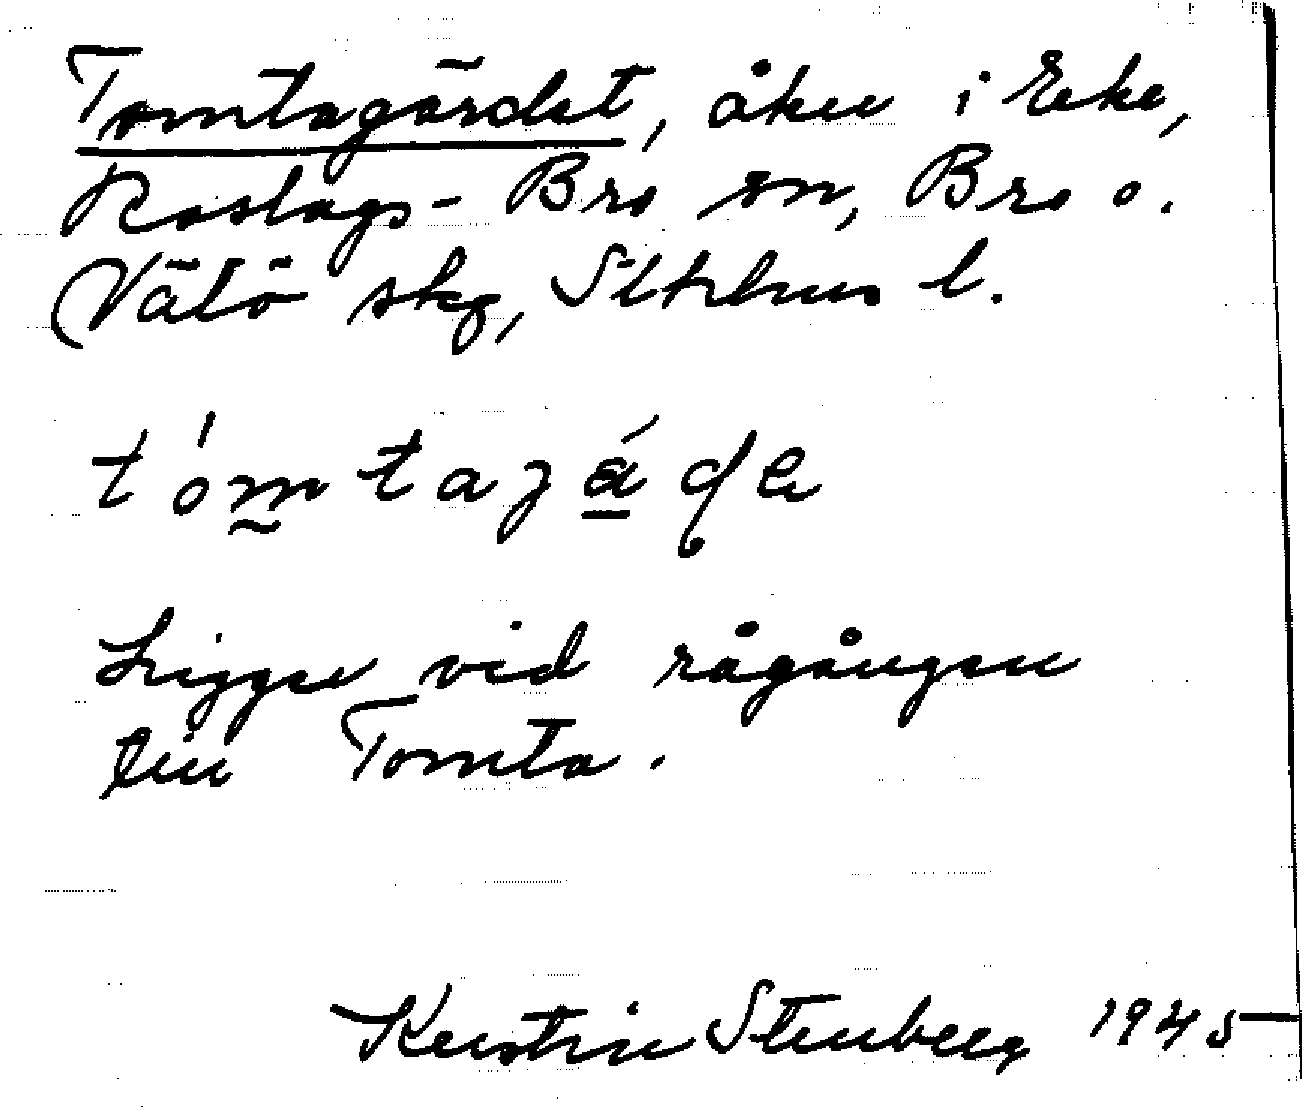 Tomtagärdet, åker i Eke,
Roslags-Bro sn, Bro o.
Vätö skg, Sthlms l.
tómtagáde
Ligger vid rågången
till Tomta.
Kerstin Stenberg 1945